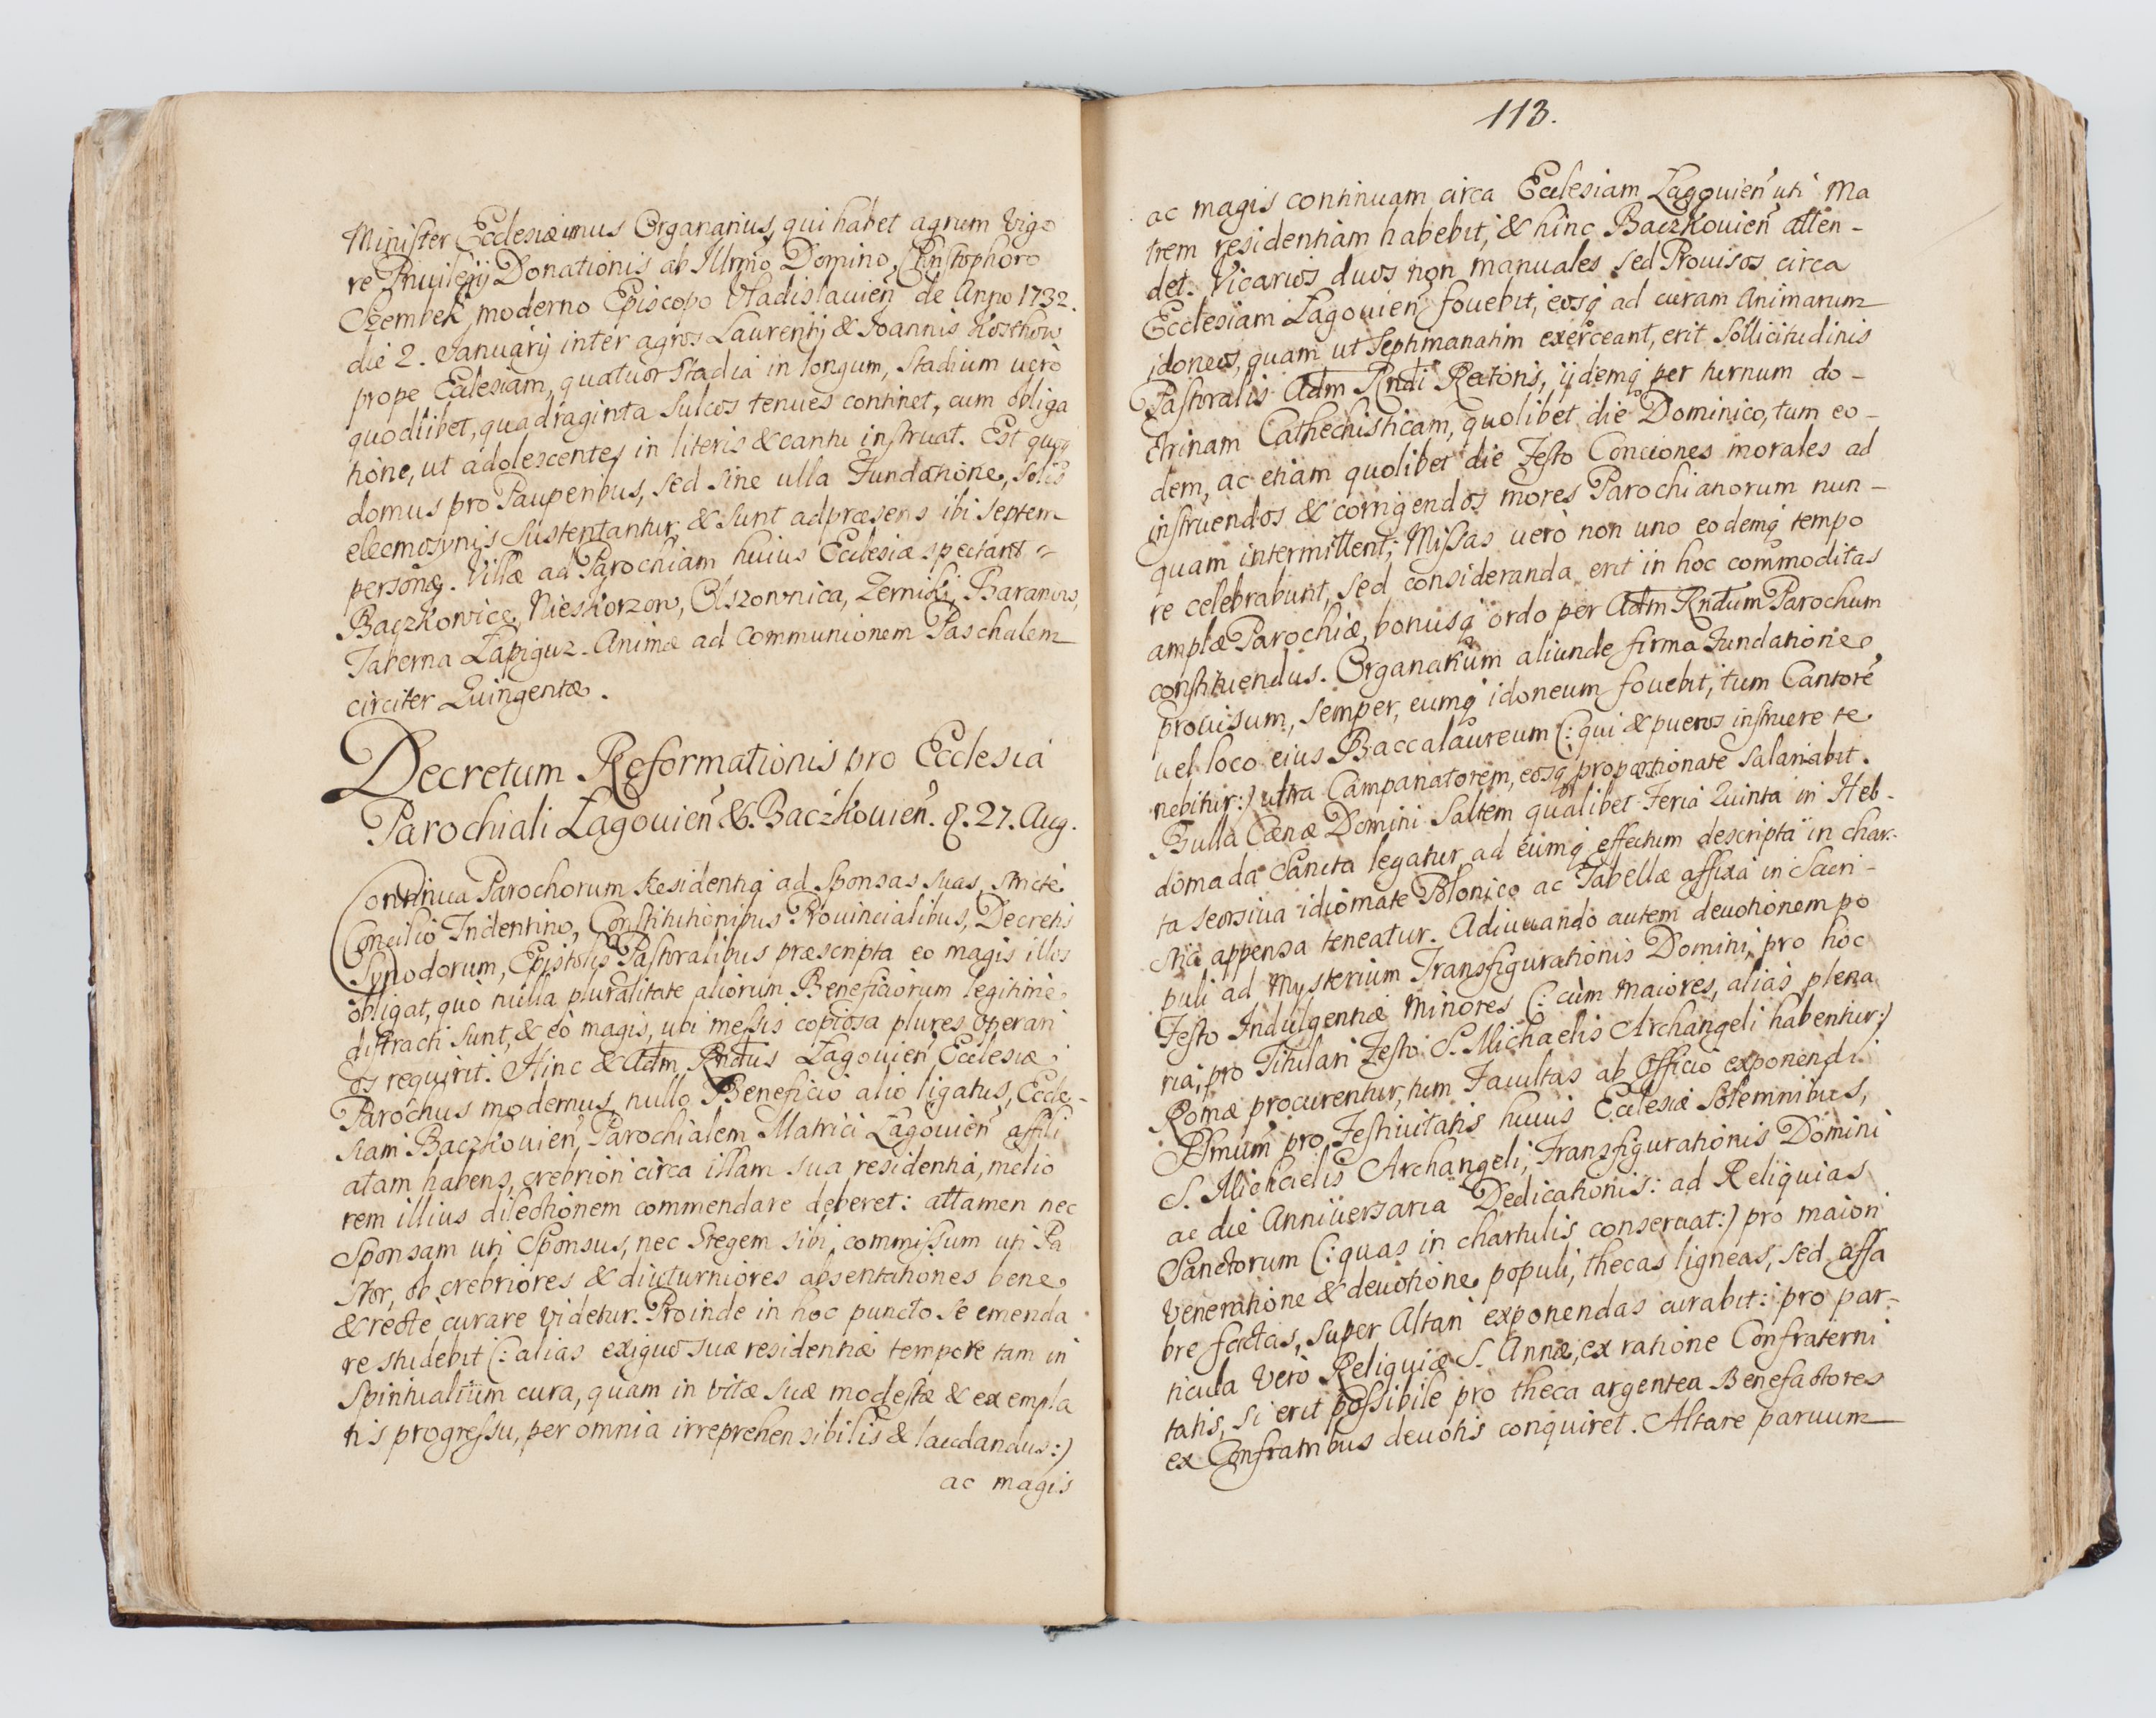 Minister Ecclesiæ unus Organarius, qui habet agrum vigo
re Priuilegij Donationis ab Illrmo Domino, Christophoro
Szembek, moderno Episcopo Vladislauien de Anno 1732.
die 2. January inter agros Laurentij & Joannis Kosthow
prope Ecclesiam, quatuor Stadia in longum, Stadium uerò
quodlibet, quadraginta Sulcos tenues continet, cum obliga
tione, ut adolescentes in literis & cantu instruat. Est quoq
domus pro Pauperibus, sed sine ulla Fundatione, solis
eleemosynis sustentantur, & sunt adpræsens ibi septem
personæ. Villæ ad Parochiam huius Ecclesiæ spectant =
Baczkowice, Nieskorzow, Olszownica, Zerniki, Baranow,
Taberna Łapiguz. Animæ ad Communionem Paschalem
circiter Quingentæ.
Decretum Reformationis pro Ecclesia
Parochiali Lagouien & Baczkouien. 8. 27. Aug.
Continua Parochorum Residentia ad Sponsas suas, strictè
Concilio Tridentino, Constitutionibus Prouincialibus, Decretis
Synodorum, Epistolis Pastoralibus præscripta eo magis illos
obligat, quò nulla pluralitate aliorum Beneficiorum legitimè
distracti sunt, & eò magis, ubi messis copiosa plures operari
os requirit. Hinc & Adm Rndus Lagouien Ecclesiæ
Parochus modernus, nullo Beneficio alio ligatus, Eccle-
siam Baczkouien, Parochialem Matrici Lagouien affili
atam habens, crebriori circa illam sua residentia, melio
rem illius dilectionem commendare deberet: attamen nec
Sponsam uti Sponsus, nec Gregem sibi commissum uti Pa
stor, ob crebriores & diuturniores absentationes bene
& rectè curare videtur. Proinde in hoc puncto se emenda
re studebit (: alias exiguo suæ residentiæ tempore tam in
Spiritualium cura, quam in vitæ suæ modestæ & exempla
ris progressu, per omnia irreprehensibilis & laudandus:)
ac magis
113.
ac magis continuam circa Ecclesiam Lagouien uti Ma
trem residentiam habebit, & hinc Baczkouien atten-
det. Vicarios duos non manuales sed Prouisos circa
Ecclesiam Lagouien fouebit, eosq ad curam Animarum
idoneos, quam ut Septimanatim exerceant, erit sollicitudinis
Pastoralis Adm Rndi Rectoris, ijdemq per turnum do-
ctrinam Cathechisticam, quolibet die Dominico, tum eo-
dem, ac etiam quolibet die Festo Conciones morales ad
instruendos & corrigendos mores Parochianorum nun-
quam intermittent; Missas uerò non uno eodemq tempo
re celebrabunt, sed consideranda erit in hoc commoditas
amplæ Parochiæ, bonusq ordo per Adm Rndum Parochum
constituendus. Organarium aliunde firma Fundatione
prouisum, semper, eumq idoneum fouebit, tum Cantorē
uel loco eius Baccalaureum (: qui & pueros instruere te
nebitur:) ultra Campanatorem, eosq proportionate salariabit.
Bulla Cænæ Domini saltem qualibet Feria Quinta in Heb-
domada Sancta legatur, ad eumq effectum descripta in char-
ta seorsiua idiomate Polonico ac Tabellæ affixa in Sacri-
stia appensa teneatur. Adiuuando autem deuotionem po
puli ad mysterium Transfigurationis Domini, pro hoc
Festo Indulgentiæ minores (: cùm maiores, alias plena
ria, pro Titulari Festo S. Michaelis Archangeli habentur:)
Romæ procurentur, tum Facultas ab Officio exponendi
SSmum pro Festiuitatis huius Ecclesiæ Solemnibus,
S. Michaelis Archangeli, Transfigurationis Domini
ac die Anniuersaria Dedicationis: ad Reliquias
Sanctorum (: quas in chartulis conseruat:) pro maiori
veneratione & deuotione populi, thecas ligneas, sed affa
bre factas, super Altari exponendas curabit: pro par-
ticula verò Reliquiæ S. Annæ, ex ratione Confraterni
tatis, si erit possibile pro theca argentea Benefactores
ex Confratribus deuotis conquiret. Altare paruum